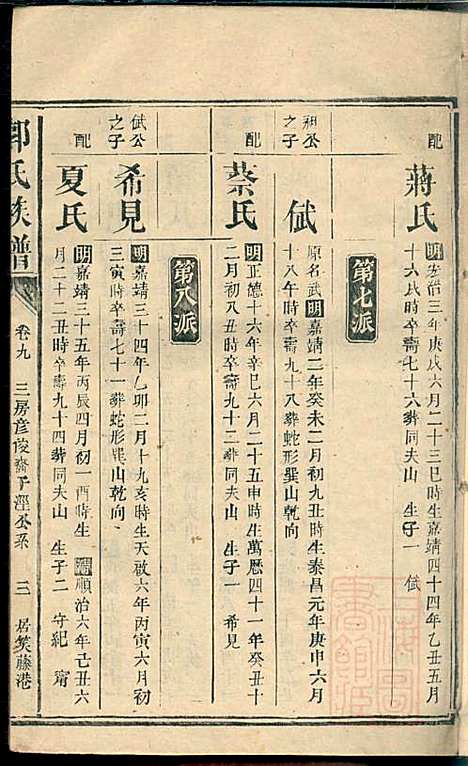 配
蔣氏
明宏治三年庚戌六月二十三巳時生嘉靖四十四年乙丑五月
十六戌時卒壽七十六葬同夫山 生子一 弑
第七派
祖公
之子
弑
原名武明嘉靖二年癸未二月初九丑時生泰昌元年庚申六月
十八午時卒壽九十八葬蛇形巽山乾向
配
蔡氏
明正德十六年辛巳六月二十五申時生萬曆四十一年癸丑十
二月初八丑時卒壽九十三葬同夫山 生子一 希見
第八派
弑公
之子
希見
明嘉靖三十四年乙卯二月十九亥時生天啟六年丙寅六月初
三寅時卒壽七十一葬蛇形巽山乾向
配
夏氏
明嘉靖三十五年丙辰四月初一酉時生清順治六年己丑六
月二十二丑時卒壽九十四葬同夫山 生子二 守紀 甯
郭氏族譜
卷九 三房彦俊斋子涇公系 三 居筻藤港